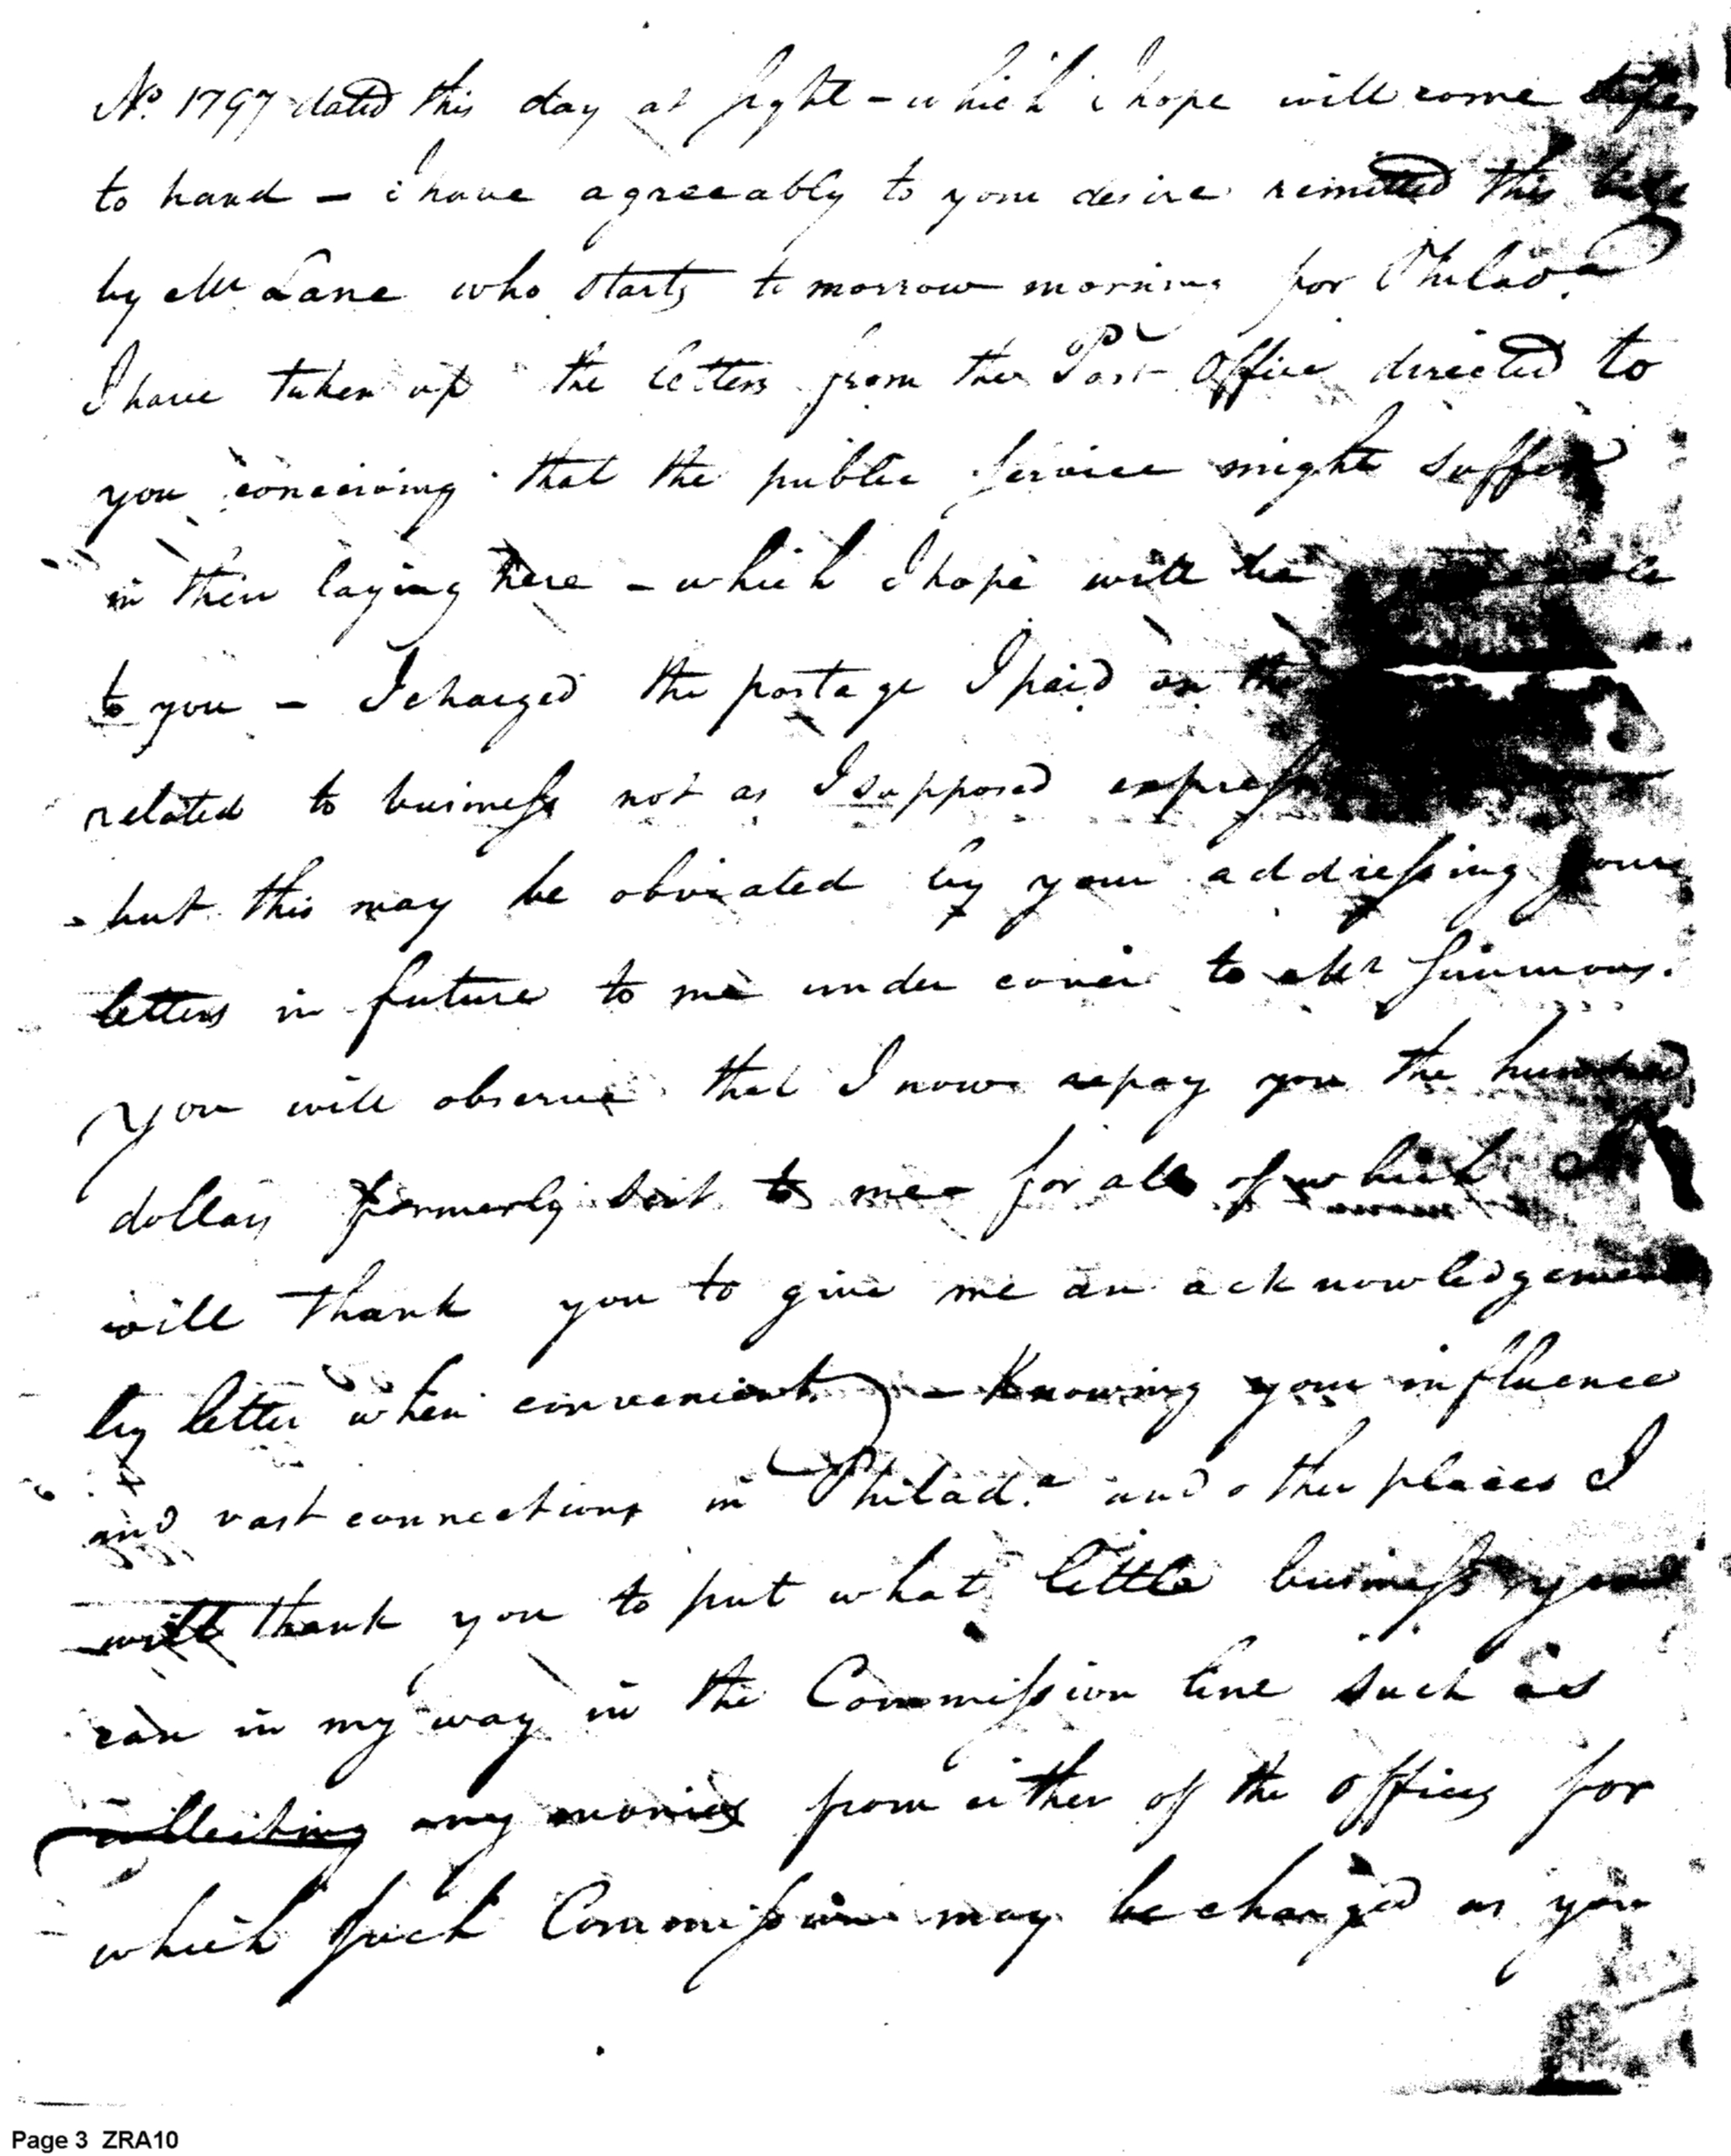 No. 1797 dated this day at sight – which i hope will come safe
to hand – i have agreeably to your desire remitted this bill
by Mr Lane who starts to morrow morning for Philada.
I have taken up the letters from the Post Office directed to
you conceiving that the public service might suffer
in their laying here – which I hope will be
to you – I charged the postage I paid on the
related to business not as I supposed express
– but this may be obviated by your addressing your
letters in future to me under cover to Mr Simmons.
You will observe that I now repay you the hundred
dollars formerly sent to me – for all of which
will thank you to give me an acknowledgement
by letter when convenient – Knowing your influence
and vast connections in Philad.a and other places I
will thank you to put what little business you
can in my way in the Commission line such as
collecting any monies from either of the offices for
which such Commissions may be charged as you
Page 3 ZRA10